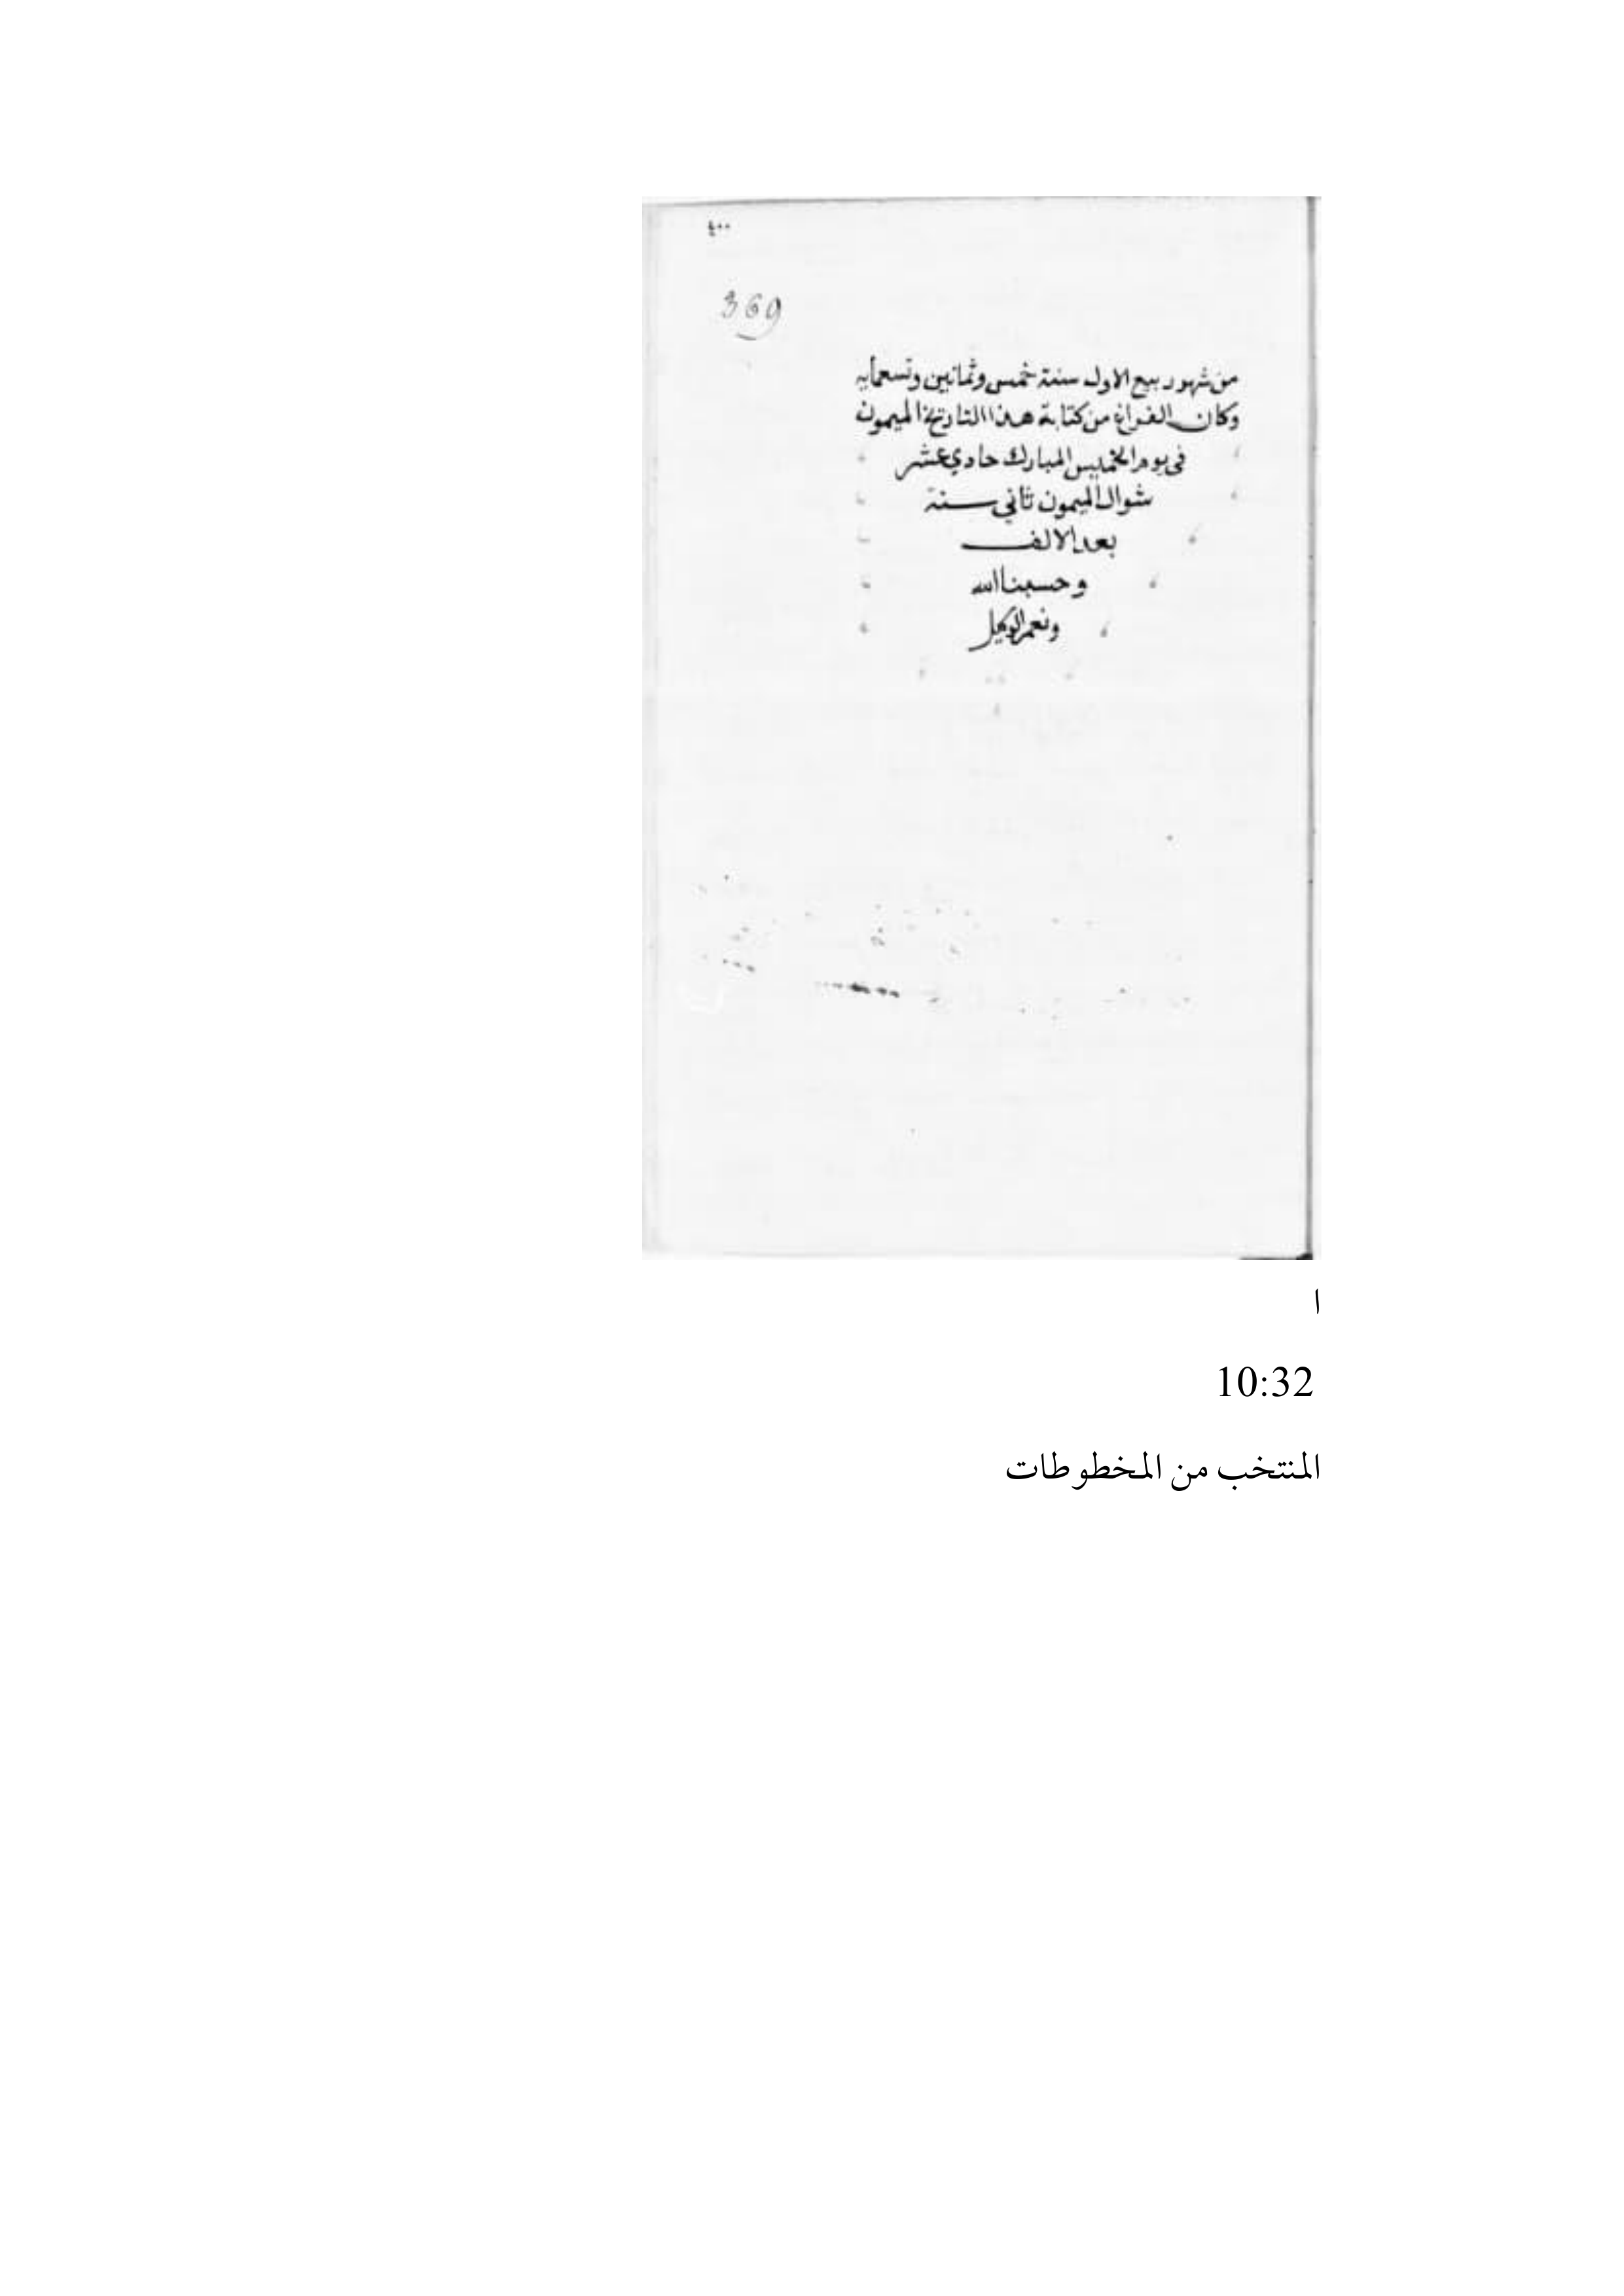 ٤٠٠
369
من شهور ربيع الاول سنة خمس وثمانين وتسعمايه
وكان الفراغ من كتابة هذا التاريخ الميمون
في يوم الخميس المبارك حادي عشر
شوال الميمون ثاني سنة
بعد الالف
وحسبنا الله
ونعم الوكيل
ا
10:32
المنتخب من المخطوطات